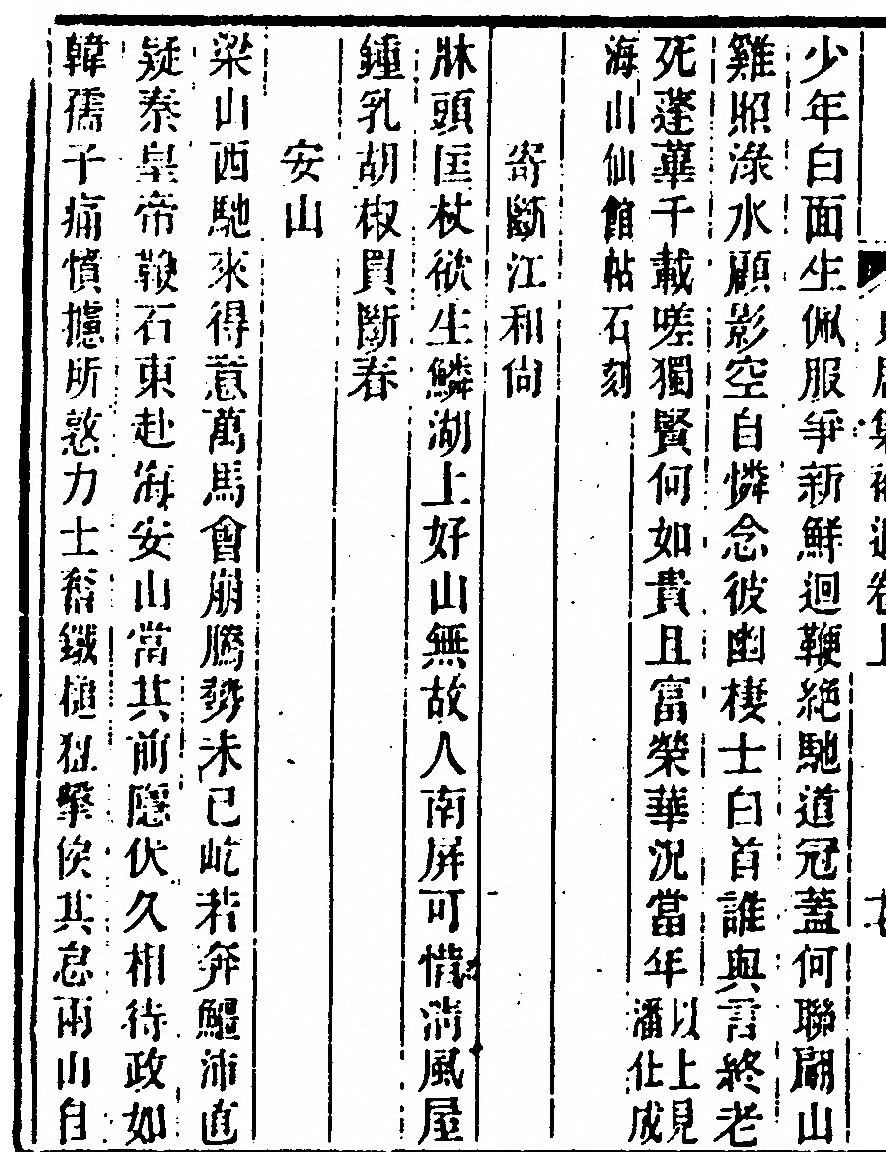 少年白面生佩服爭新鮮迴鞭絶馳道冠蓋何聯翩山
雞照淥水顧影空自憐念彼幽棲士白首誰與言終老
死蓬蓽千載嗟獨賢何如貴且富榮華況當年以上見潘仕成
海山仙館帖石刻
寄斷江和尙
牀頭匡杖欲生鱗湖上好山無故人南屏可惜淸風屋
鍾乳胡椒買斷春
安山
梁山西馳來得意萬馬會崩騰勢未已屹若奔鯷沛直
疑秦皇帝鞭石東赴海安山當其前隱伏久相待政如
韓孺子痛憤攄所憝力士奮鐵槌狙擊俟其怠兩山自